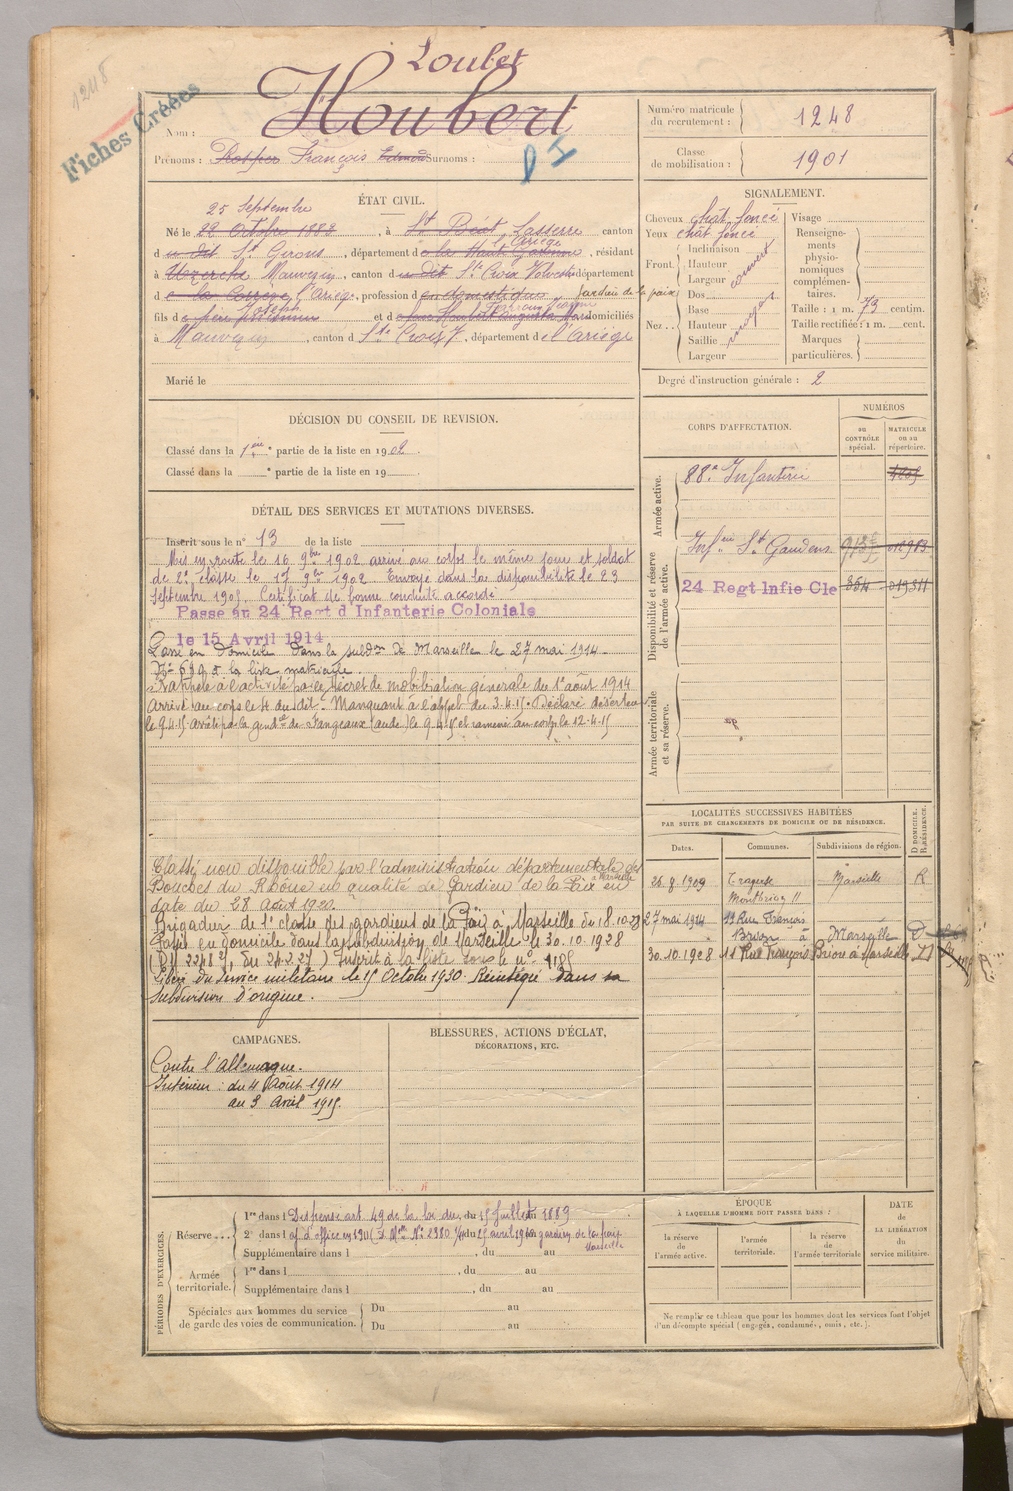 1248
Fiches Créées
Loubet
Houbert
Nom :
Prénoms : François Surnoms :
Numéro matricule du recrutement : 1248
Classe de mobilisation : 1901
ÉTAT CIVIL.
25 Septembre
Né le 22 Octobre 1882, à St Béat Lasserre canton
d u dit St Girons, département d e la Haute Garonne l'Ariège, résidant
à Uzerche Mauvezin, canton d u dit Ste Croix Volvestre département
d e la Corrèze l'Ariège, profession d domestique Gardien de la paix
fils d Joseph et d domiciliés
à Mauvezin, canton d Ste Croix V., département d e l'Ariège
Marié le
SIGNALEMENT.
Cheveux chât. foncé
Yeux chât foncé
Front. Inclinaison
Hauteur
Largeur couvert
Nez Dos
Base
Hauteur moyen
Saillie
Largeur
Visage
Renseignements physionomiques complémentaires.
Taille : 1 m. 73 centim.
Taille rectifiée : 1 m. cent.
Marques particulières.
Degré d'instruction générale : 2
DÉCISION DU CONSEIL DE REVISION.
Classé dans la 1ère partie de la liste en 1902.
Classé dans la partie de la liste en 19
DÉTAIL DES SERVICES ET MUTATIONS DIVERSES.
Inscrit sous le n° 13 de la liste
Mis en route le 16 9bre 1902 arrivé au corps le même jour et soldat
de 2e classe le 17 9bre 1902. Envoyé dans la disponibilité le 23
septembre 1905. Certificat de bonne conduite accordé
Passé au 24 Regt d'Infanterie Coloniale
le 15 Avril 1914
Passé en domicile dans la subdon de Marseille le 27 mai 1914
N° 699 à la liste matricule.
Rappelé à l'activité par le décret de mobilisation générale du 1er août 1914
Arrivé au corps le 4 du dit. Manquant à l'appel du 3.4.15. Déclaré déserteur
le 9.4.15 arrêté par la gendie de Fangeaux (aude) le 9.4.15 et ramené au corps le 12.4.15
Classé non disponible par l'administration départementale des
Bouches du Rhône en qualité de Gardien de la Paix à Marseille en
date du 28 Août 1920.
Brigadier de 1e classe des gardiens de la Paix à Marseille du 18.10.23
Passé en domicile dans la subdivision de Marseille le 30.10.1928
Libéré du service militaire le 15 Octobre 1930. Réintégré dans sa
subdivision d'origine.
CORPS D'AFFECTATION.
NUMÉROS
au CONTRÔLE spécial.
MATRICULE ou au répertoire.
Armée active.
88e Infanterie
Disponibilité et réserve de l'armée active.
Infrie St Gaudens
24 Regt Infie Cle
Armée territoriale et sa réserve.
LOCALITÉS SUCCESSIVES HABITÉES
PAR SUITE DE CHANGEMENTS DE DOMICILE OU DE RÉSIDENCE.
Dates. Communes. Subdivisions de région. D DOMICILE. R RÉSIDENCE.
26.8.1909 Traverse Montbrion 11 Marseille R
27 mai 1914 11 Rue François Brion à Marseille D
30.10.1928 11 Rue François Brion à Marseille D
CAMPAGNES.
Contre l'Allemagne.
Intérieur : du 4 Août 1914
au 3 Avril 1915
BLESSURES, ACTIONS D'ÉCLAT,
DÉCORATIONS, ETC.
PÉRIODES D'EXERCICES.
Réserve
1re dans l Dispensé art. 49 de la loi du 15 Juillet 1889
2e dans l
Supplémentaire dans l , du au
Armée territoriale.
1re dans l , du au
Supplémentaire dans l , du au
Spéciales aux hommes du service de garde des voies de communication.
Du au
Du au
ÉPOQUE
À LAQUELLE L'HOMME DOIT PASSER DANS :
la réserve de l'armée active.
l'armée territoriale.
la réserve de l'armée territoriale
DATE de LA LIBÉRATION du service militaire.
Ne remplir ce tableau que pour les hommes dont les services font l'objet
d'un décompte spécial (engagés, condamnés, omis, etc.).